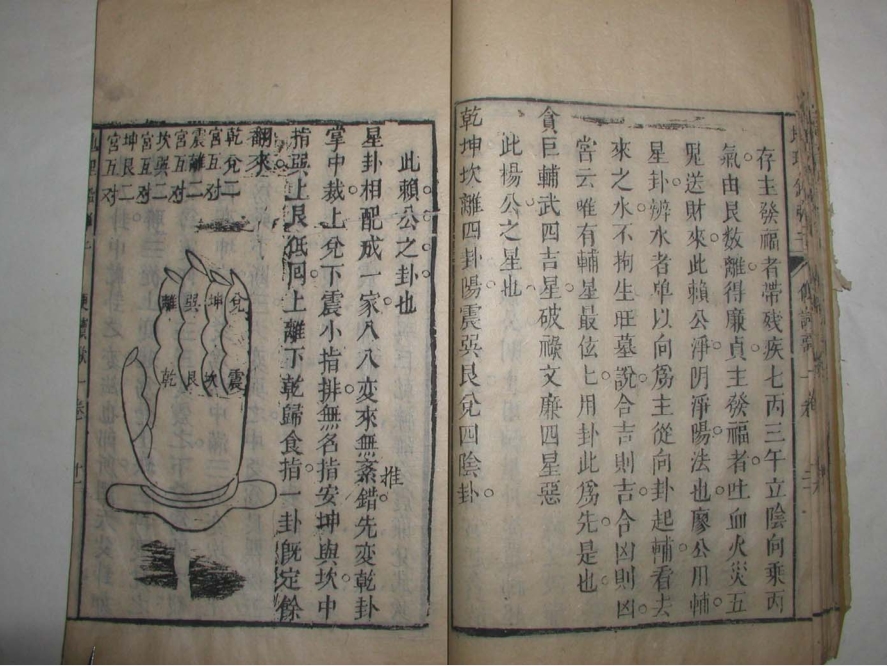 存主發福者帶残疾七丙三午立陰向乘丙
氣由艮数離得廉貞主發福者吐血火災五
鬼送財來此賴公淨阴淨陽法也廖公用輔
星卦辨水者单以向為主從向卦起輔看去
來之水不拘生旺墓說合吉則吉合凶則凶
宫云唯有輔星最伭七用卦此為先是也
貪巨輔武四吉星破祿文廉四星惡
此楊公之星也
乾坤坎離四卦陽震巽艮兌四陰卦
此賴公之卦也
星卦相配成一家八八变來無紊錯先变乾卦
推
掌中裁上兌下震小指排無名指安坤與坎中
指巽上艮低囘上離下乾歸食指一卦既定餘
翻來
乾兌二
宫互对
震離二
宫互对
坎巽二
宫互对
坤艮二
宫互对
兌
坤
巽
離
震
坎
艮
乾